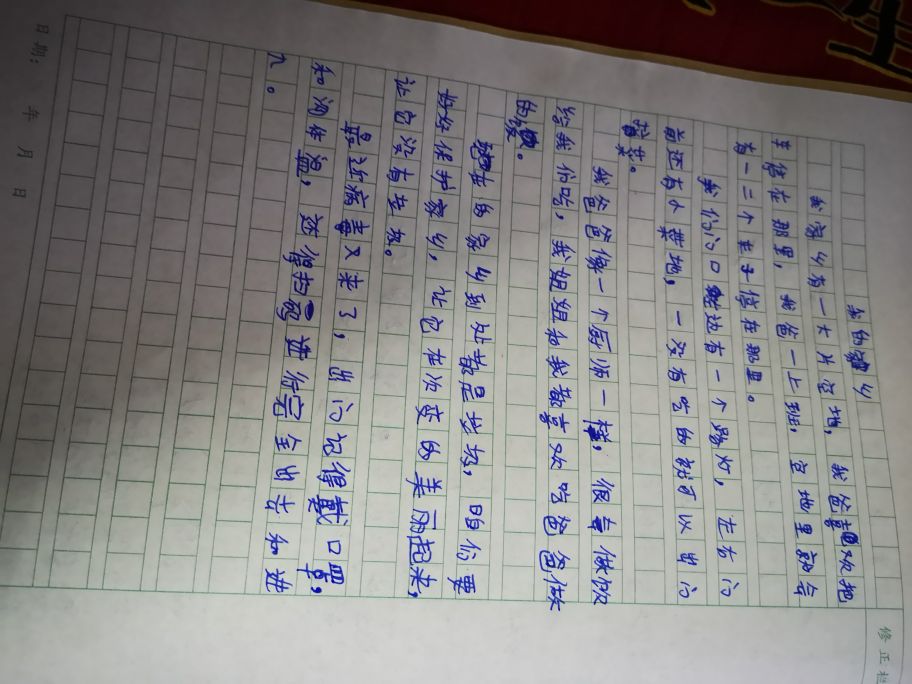 我的家乡
我家乡有一大片空地,我爸喜欢把
车停在那里,我爸一上班,空地里就会
有一二个车子停在那里。
我们门口边有一个路灯,左右门
前还有个菜地,一没有吃的就可以出门
拔菜。
我爸爸像一个厨师一样,很会做饭
给我们吃,我姐姐和我都喜欢吃爸爸做
的饭。
的家乡到处都是垃圾,咱们要
好好保护家乡,让它在次变的美丽起来,
让它没有垃圾。
最近病毒又来了,出门记得戴口罩,
和测体温,还得扫码进行安全出去和进
入。
修正栏
日期: 年 月 日